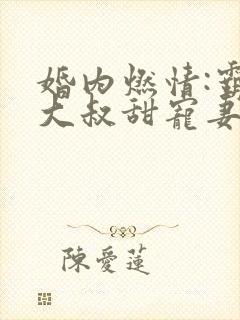 婚内燃情:霸
大叔甜寵妻
陳愛蓮